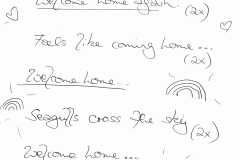 Welcome home again (2x)
Feels like coming home... (2x)
Welcome home...
Seagulls cross the sky (2x)
Welcome home...